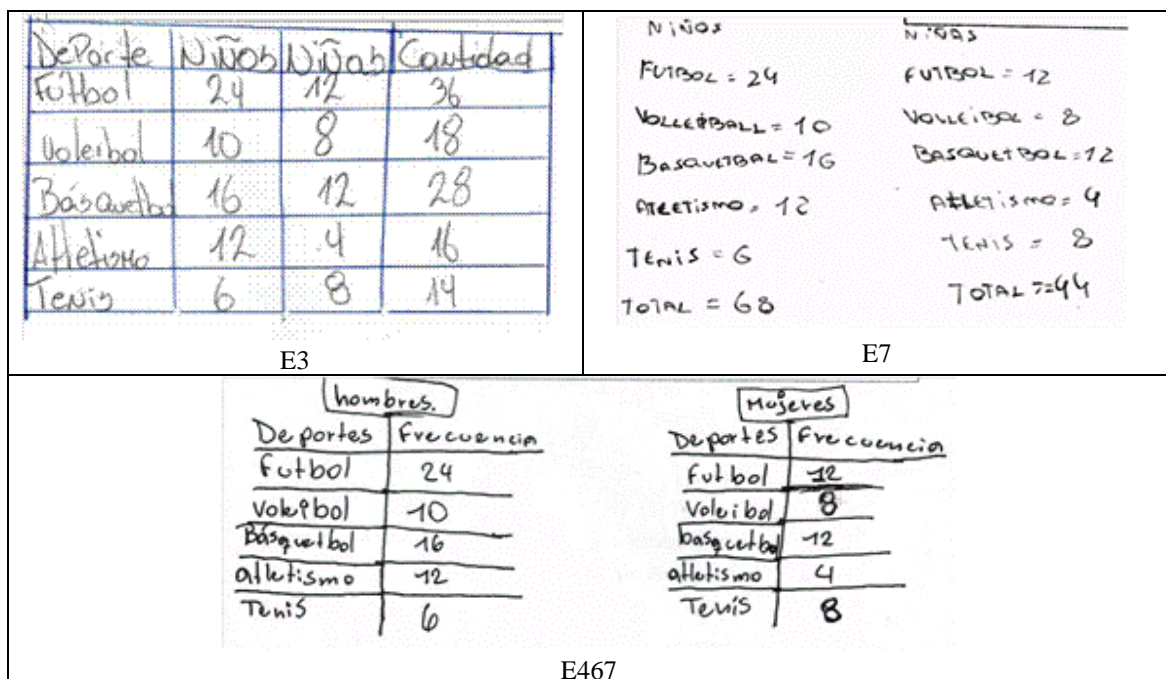 DePorte Niños Niñas Cantidad
Fútbol 24 12 36
Voleibol 10 8 18
Básquetbol 16 12 28
Atletismo 12 4 16
Tenis 6 8 14
E3
NIÑOS
FUTBOL = 24
VOLLEIBALL = 10
BASQUETBAL = 16
ATLETISMO = 12
TENIS = 6
TOTAL = 68
NIÑAS
FUTBOL = 12
VOLLEIBOL = 8
BASQUETBOL = 12
ATLETISMO = 4
TENIS = 8
TOTAL = 44
E7
hombres.
Deportes Frecuencia
Futbol 24
Voleibol 10
Básquetbol 16
atletismo 12
Tenis 6
Mujeres
Deportes Frecuencia
Futbol 12
Voleibol 8
basquetbol 12
atletismo 4
Tenis 8
E467